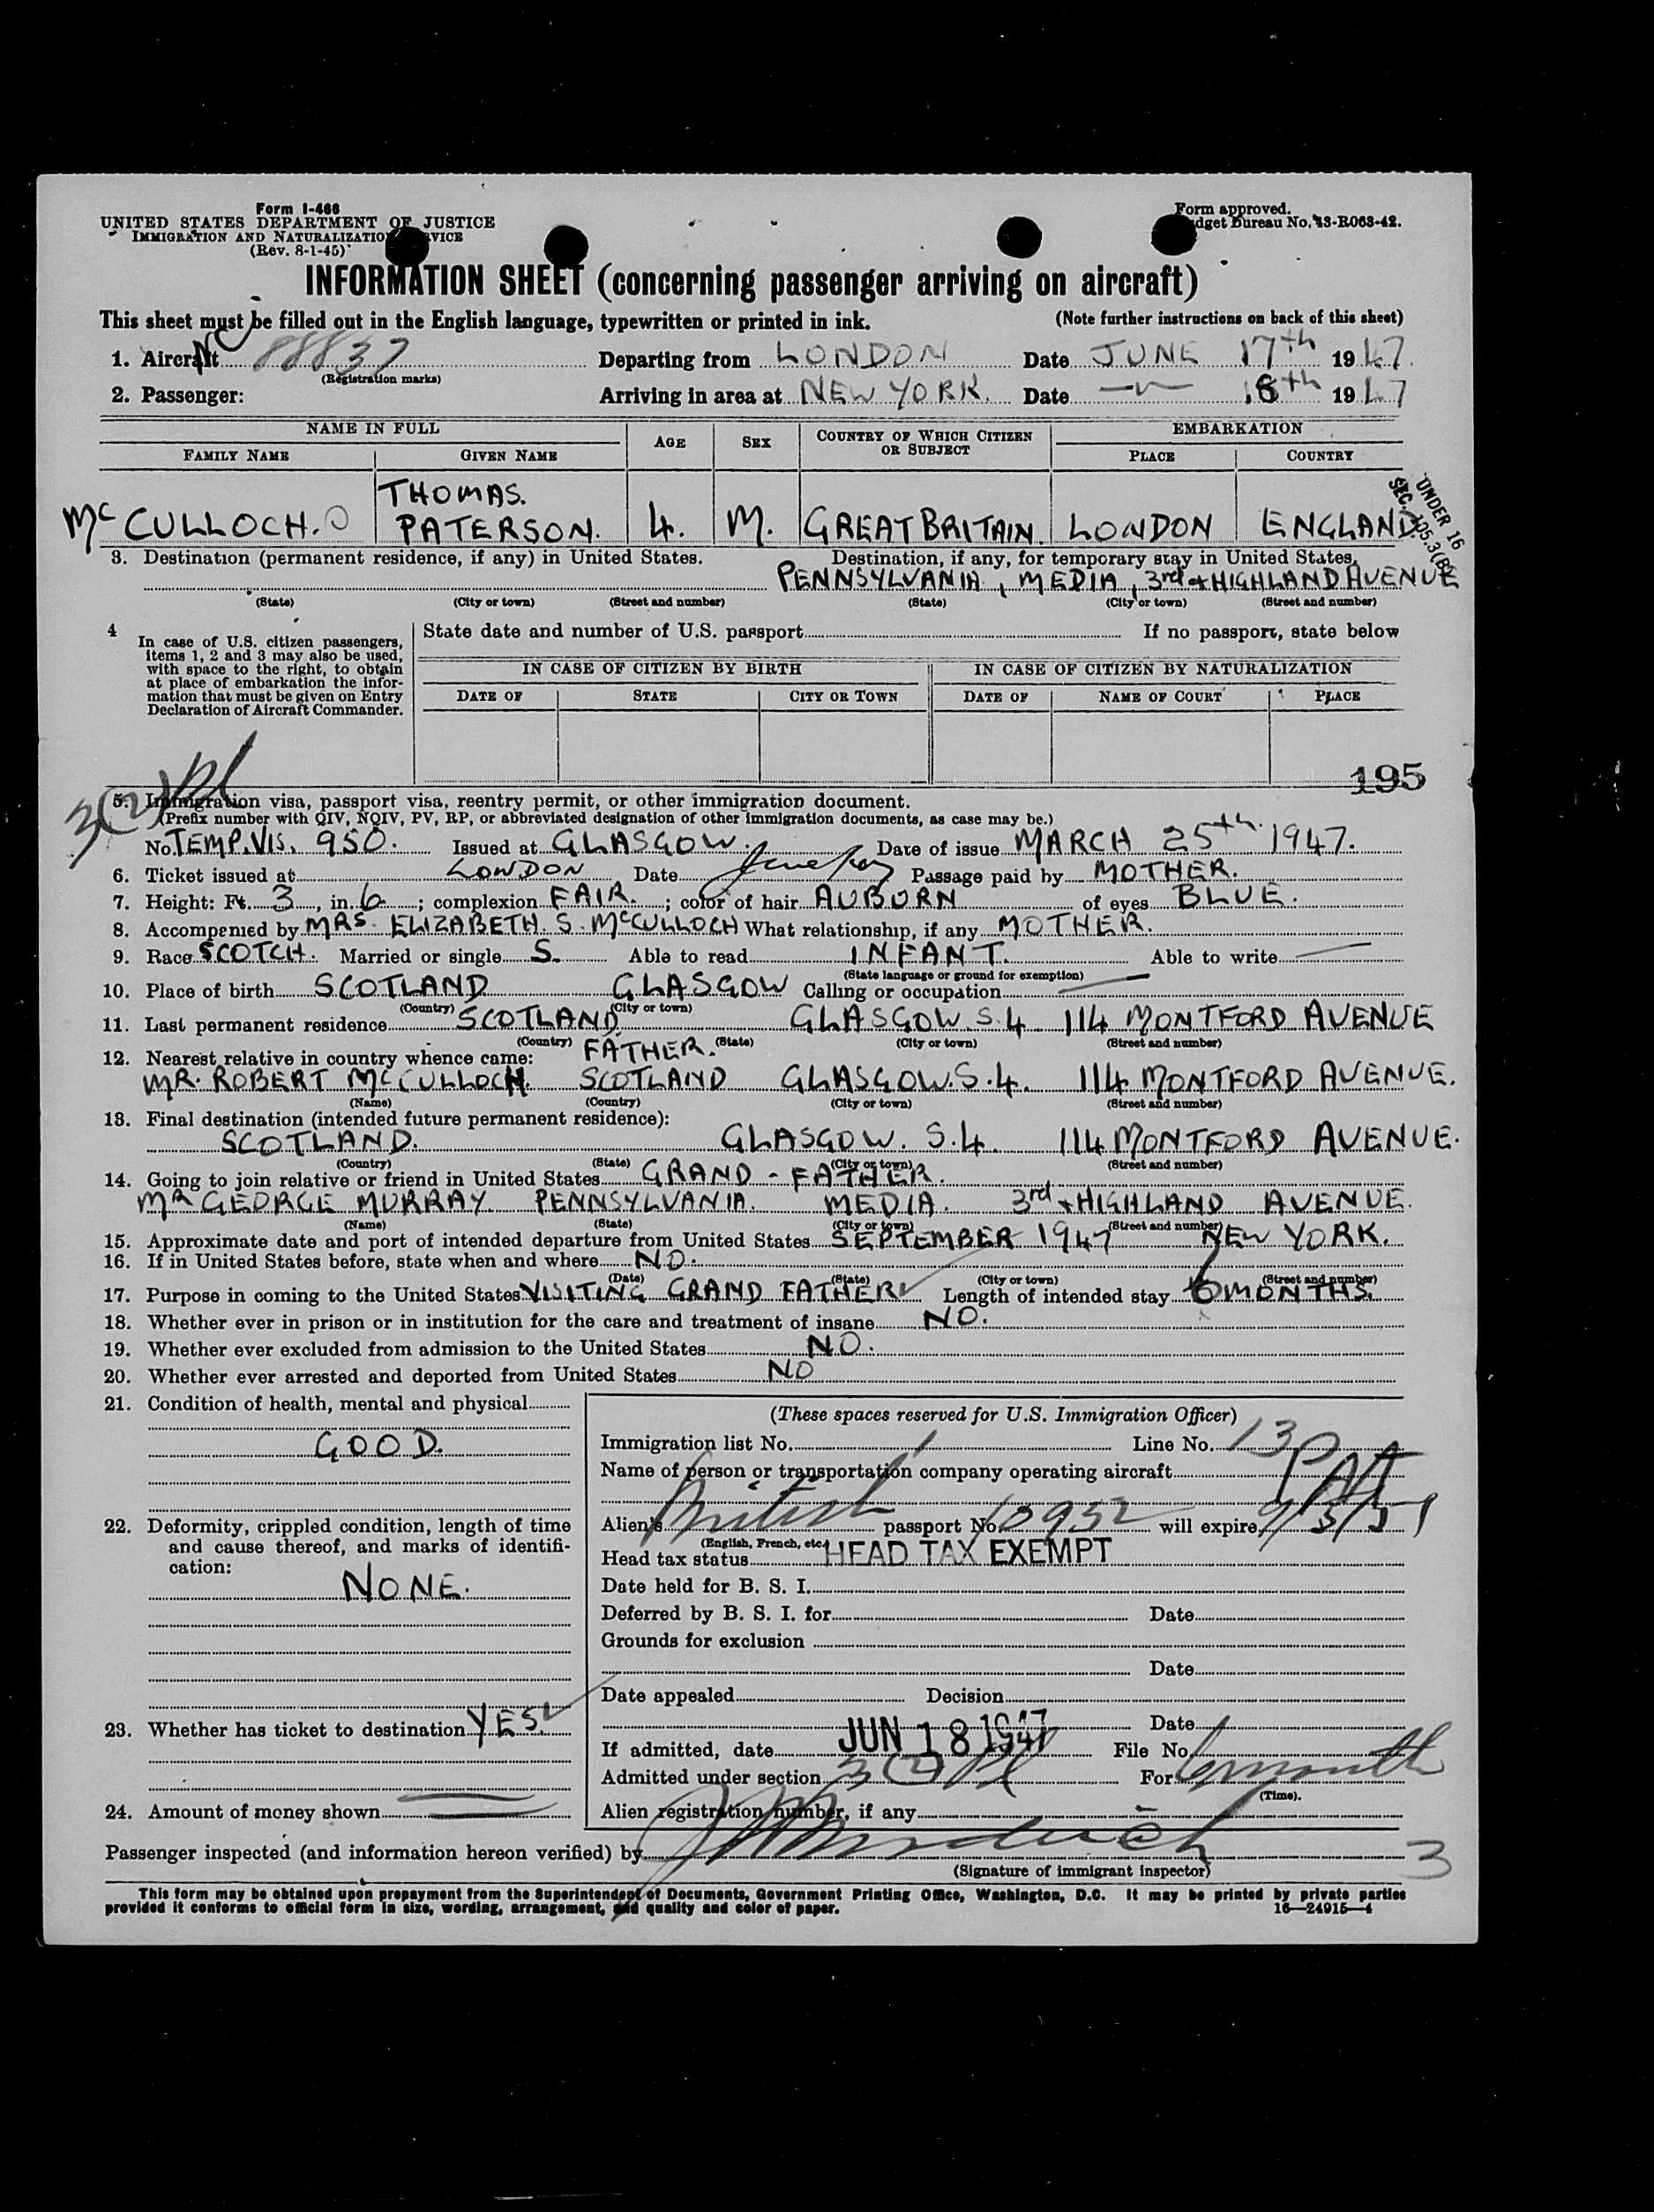 Form I-466
UNITED STATES DEPARTMENT OF JUSTICE
IMMIGRATION AND NATURALIZATION SERVICE
(Rev. 8-1-45)
Form approved.
Budget Bureau No. 43-R063-42.
INFORMATION SHEET (concerning passenger arriving on aircraft)
This sheet must be filled out in the English language, typewritten or printed in ink. (Note further instructions on back of this sheet)
1. Aircraft NC 88837 Departing from LONDON Date JUNE 17th 1947.
(Registration marks)
2. Passenger: Arriving in area at NEW YORK. Date 18th 1947
NAME IN FULL AGE SEX COUNTRY OF WHICH CITIZEN OR SUBJECT EMBARKATION
FAMILY NAME GIVEN NAME PLACE COUNTRY
McCULLOCH. THOMAS. PATERSON. 4. M. GREAT BRITAIN. LONDON ENGLAND.
UNDER 16
SEC. 105.3(B)
3. Destination (permanent residence, if any) in United States. Destination, if any, for temporary stay in United States.
PENNSYLVANIA, MEDIA, 3rd + HIGHLAND AVENUE
(State) (City or town) (Street and number) (State) (City or town) (Street and number)
4 In case of U.S. citizen passengers, items 1, 2 and 3 may also be used, with space to the right, to obtain at place of embarkation the information that must be given on Entry Declaration of Aircraft Commander.
State date and number of U.S. passport If no passport, state below
IN CASE OF CITIZEN BY BIRTH IN CASE OF CITIZEN BY NATURALIZATION
DATE OF STATE CITY OR TOWN DATE OF NAME OF COURT PLACE
195
3(2)
5. Immigration visa, passport visa, reentry permit, or other immigration document.
(Prefix number with QIV, NQIV, PV, RP, or abbreviated designation of other immigration documents, as case may be.)
No. TEMP. VIS. 950. Issued at GLASGOW. Date of issue MARCH 25th. 1947.
6. Ticket issued at LONDON Date Passage paid by MOTHER.
7. Height: Ft. 3, in. 6; complexion FAIR.; color of hair AUBURN of eyes BLUE.
8. Accompenied by MRS. ELIZABETH. S. McCULLOCH What relationship, if any MOTHER.
9. Race SCOTCH. Married or single S. Able to read INFANT. Able to write —
(State language or ground for exemption)
10. Place of birth SCOTLAND GLASGOW Calling or occupation —
(Country) (City or town)
11. Last permanent residence SCOTLAND GLASGOW. S.4 114 MONTFORD AVENUE
(Country) (State) (City or town) (Street and number)
12. Nearest relative in country whence came: FATHER.
MR. ROBERT McCULLOCH. SCOTLAND GLASGOW. S.4. 114 MONTFORD AVENUE.
(Name) (Country) (City or town) (Street and number)
13. Final destination (intended future permanent residence):
SCOTLAND. GLASGOW. S.4. 114 MONTFORD AVENUE.
(Country) (State) (City or town) (Street and number)
14. Going to join relative or friend in United States GRAND-FATHER.
MR GEORGE MURRAY. PENNSYLVANIA. MEDIA. 3rd + HIGHLAND AVENUE.
(Name) (State) (City or town) (Street and number)
15. Approximate date and port of intended departure from United States SEPTEMBER 1947 NEW YORK.
16. If in United States before, state when and where NO.
(Date) (State) (City or town) (Street and number)
17. Purpose in coming to the United States VISITING GRAND FATHER Length of intended stay 6 MONTHS.
18. Whether ever in prison or in institution for the care and treatment of insane NO.
19. Whether ever excluded from admission to the United States NO.
20. Whether ever arrested and deported from United States NO
21. Condition of health, mental and physical
GOOD.
22. Deformity, crippled condition, length of time and cause thereof, and marks of identification:
NONE.
23. Whether has ticket to destination YES
24. Amount of money shown
(These spaces reserved for U.S. Immigration Officer)
Immigration list No. 1 Line No. 13
Name of person or transportation company operating aircraft PAA
Alien's British passport No. 10952 will expire 9/3/51
(English, French, etc.)
Head tax status HEAD TAX EXEMPT
Date held for B. S. I.
Deferred by B. S. I. for Date
Grounds for exclusion
Date
Date appealed Decision
Date
If admitted, date JUN 18 1947 File No.
Admitted under section 3(2) For 6 month
(Time).
Alien registration number, if any
Passenger inspected (and information hereon verified) by
(Signature of immigrant inspector)
3
This form may be obtained upon prepayment from the Superintendent of Documents, Government Printing Office, Washington, D.C. It may be printed by private parties
provided it conforms to official form in size, wording, arrangement, and quality and color of paper. 16—24915—4